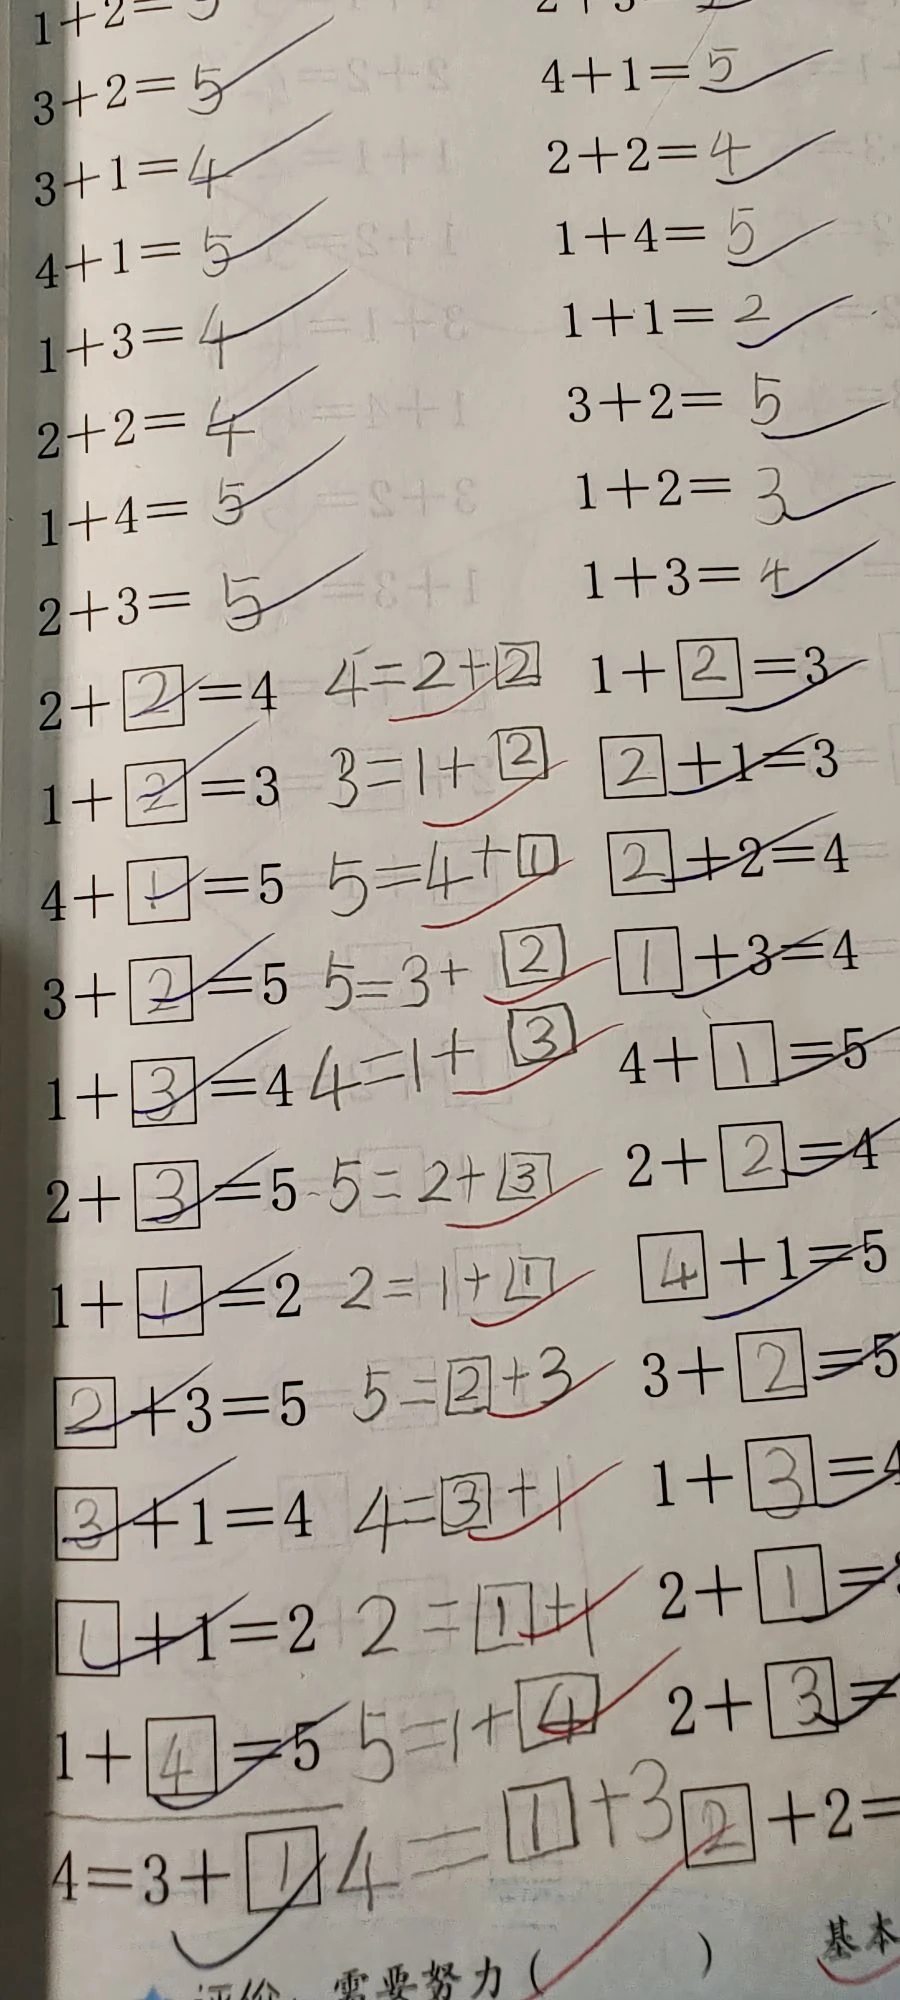 1+2=
3+2=5 4+1=5
3+1=4 2+2=4
4+1=5 1+4=5
1+3=4 1+1=2
2+2=4 3+2=5
1+4=5 1+2=3
2+3=5 1+3=4
2+2=4 4=2+2 1+2=3
1+2=3 3=1+2 2+1=3
4+1=5 5=4+1 2+2=4
3+2=5 5=3+2 1+3=4
1+3=4 4=1+3 4+1=5
2+3=5 5=2+3 2+2=4
1+1=2 2=1+1 4+1=5
2+3=5 5=2+3 3+2=5
3+1=4 4=3+1 1+3=4
1+1=2 2=1+1 2+1=
1+4=5 5=1+4 2+3=
4=3+1 4=1+3 2+2=
评价: 需要努力( ) 基本